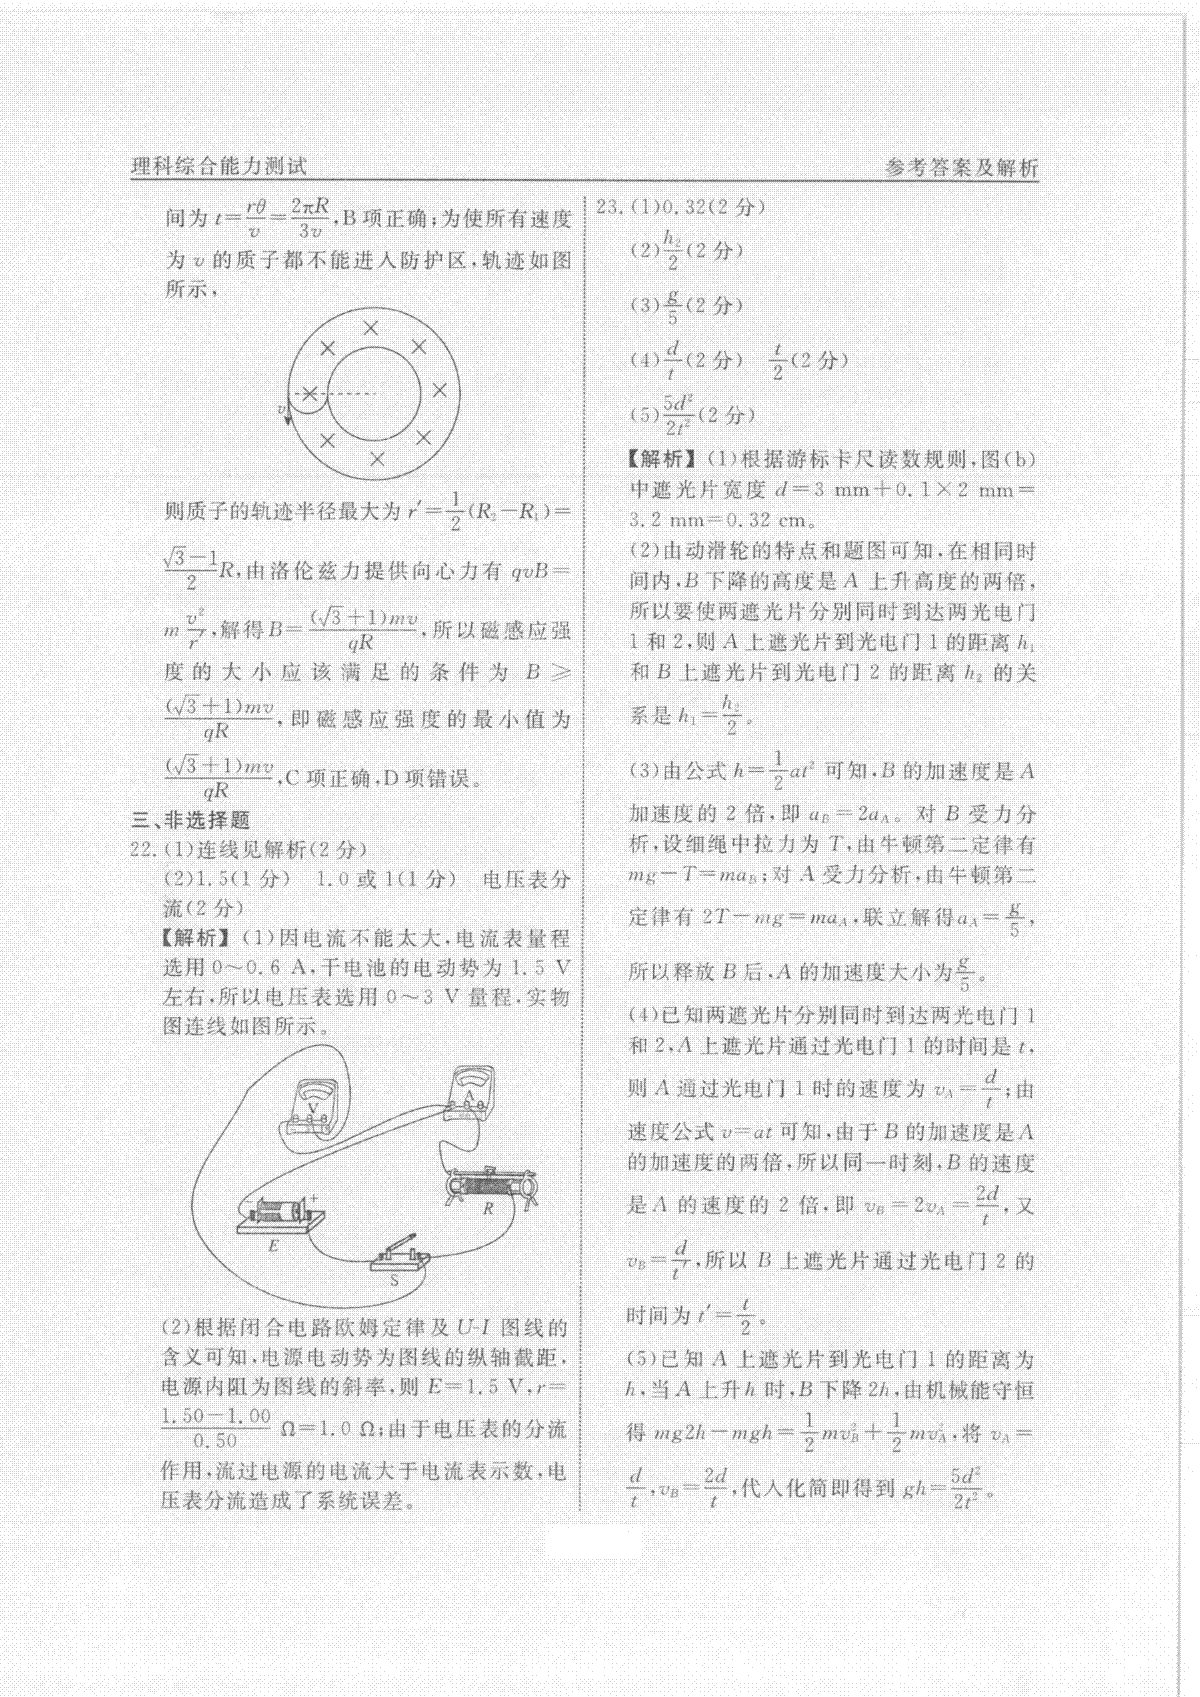 理科综合能力测试
参考答案及解析
间为 t=rθ/v=2πR/3v,B 项正确;为使所有速度
为 v 的质子都不能进入防护区,轨迹如图
所示,
v
则质子的轨迹半径最大为 r′=1/2(R₂-R₁)=
(√3-1)/2 R,由洛伦兹力提供向心力有 qvB=
m v²/r′,解得B=(√3+1)mv/qR,所以磁感应强
度的大小应该满足的条件为 B≥
(√3+1)mv/qR,即磁感应强度的最小值为
(√3+1)mv/qR,C 项正确,D 项错误。
三、非选择题
22.(1)连线见解析(2 分)
(2)1.5(1 分) 1.0 或 1(1 分) 电压表分
流(2 分)
【解析】(1)因电流不能太大,电流表量程
选用 0～0.6 A,干电池的电动势为 1.5 V
左右,所以电压表选用 0～3 V 量程,实物
图连线如图所示。
V
A
+
R
E
S
(2)根据闭合电路欧姆定律及 U-I 图线的
含义可知,电源电动势为图线的纵轴截距,
电源内阻为图线的斜率,则 E=1.5 V,r=
(1.50-1.00)/0.50 Ω=1.0 Ω;由于电压表的分流
作用,流过电源的电流大于电流表示数,电
压表分流造成了系统误差。
23.(1)0.32(2 分)
(2)h₂/2(2 分)
(3)g/5(2 分)
(4)d/t(2 分) t/2(2 分)
(5)5d²/2t²(2 分)
【解析】(1)根据游标卡尺读数规则,图(b)
中遮光片宽度 d=3 mm+0.1×2 mm=
3.2 mm=0.32 cm。
(2)由动滑轮的特点和题图可知,在相同时
间内,B 下降的高度是 A 上升高度的两倍,
所以要使两遮光片分别同时到达两光电门
1 和 2,则 A 上遮光片到光电门 1 的距离 h₁
和 B 上遮光片到光电门 2 的距离 h₂ 的关
系是 h₁=h₂/2。
(3)由公式 h=1/2at² 可知,B 的加速度是 A
加速度的 2 倍,即 a_B=2a_A。对 B 受力分
析,设细绳中拉力为 T,由牛顿第二定律有
mg-T=ma_B;对 A 受力分析,由牛顿第二
定律有 2T-mg=ma_A,联立解得a_A=g/5,
所以释放 B 后,A 的加速度大小为g/5。
(4)已知两遮光片分别同时到达两光电门 1
和 2,A 上遮光片通过光电门 1 的时间是 t,
则 A 通过光电门 1 时的速度为 v_A=d/t;由
速度公式 v=at 可知,由于 B 的加速度是 A
的加速度的两倍,所以同一时刻,B 的速度
是 A 的速度的 2 倍,即 v_B=2v_A=2d/t,又
v_B=d/t′,所以 B 上遮光片通过光电门 2 的
时间为 t′=t/2。
(5)已知 A 上遮光片到光电门 1 的距离为
h,当 A 上升 h 时,B 下降 2h,由机械能守恒
得 mg2h-mgh=1/2mv_B²+1/2mv_A²,将 v_A=
d/t,v_B=2d/t,代入化简即得到 gh=5d²/2t²。